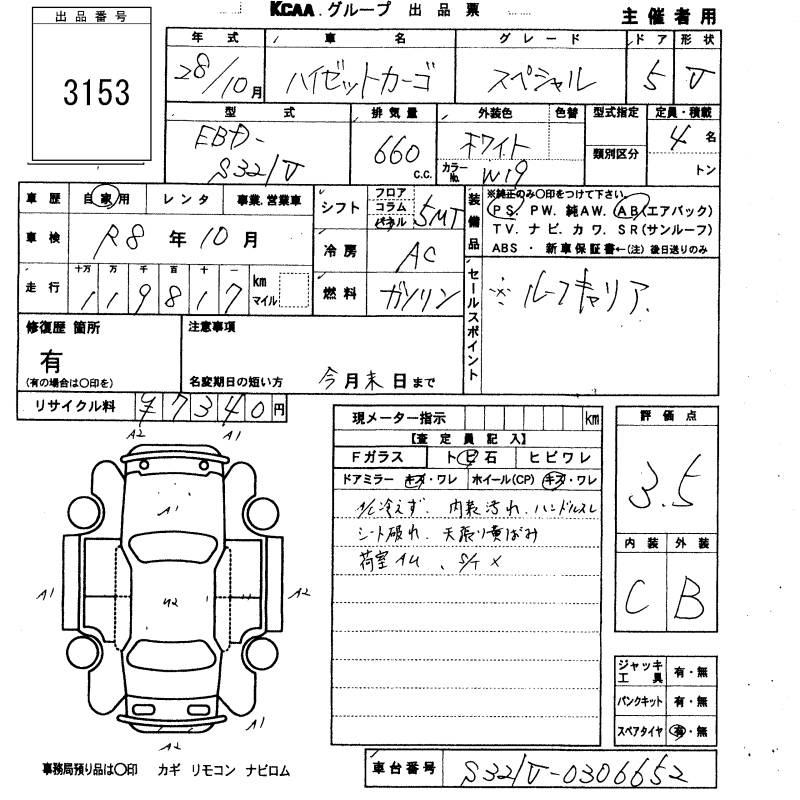 KCAA グループ 出品票
主催者用
出品番号
3153
年式 車名 グレード ドア 形状
28/10月 ハイゼットカーゴ スペシャル 5 V
型式 排気量 外装色 色替 型式指定 定員・積載
EBD-
S321V 660 c.c. ホワイト 4名
カラーNo. W19 類別区分 トン
車歴 自家用 レンタ 事業,営業車
車検 R8年10月
走行 十万 万 千 百 十 一
119817 km マイル
シフト フロア コラム パネル 5MT
冷房 AC
燃料 ガソリン
装備品
※純正のみ〇印をつけて下さい。
PS. PW. 純AW. AB(エアバック)
TV. ナビ. カワ. SR(サンルーフ)
ABS ・ 新車保証書←(注) 後日送りのみ
セールスポイント
※ルーフキャリア
修復歴 箇所
有
(有の場合は〇印を)
注意事項
名変期日の短い方 今月末日まで
リサイクル料 ¥7340円
現メーター指示 km
【査定員記入】
Fガラス トビ石 ヒビワレ
ドアミラー キズ・ワレ ホイール(CP) キズ・ワレ
A/C冷えず. 内装汚れ. ハンドルスレ
シート破れ. 天張り黄ばみ
荷室AU 、S/T X
評価点
3.5
内装 外装
C B
ジャッキ工具 有・無
パンクキット 有・無
スペアタイヤ 有・無
A2 A1
A1
A1 A2 A1
A1
A2
事務局預り品は〇印 カギ リモコン ナビロム
車台番号 S321V-0306652